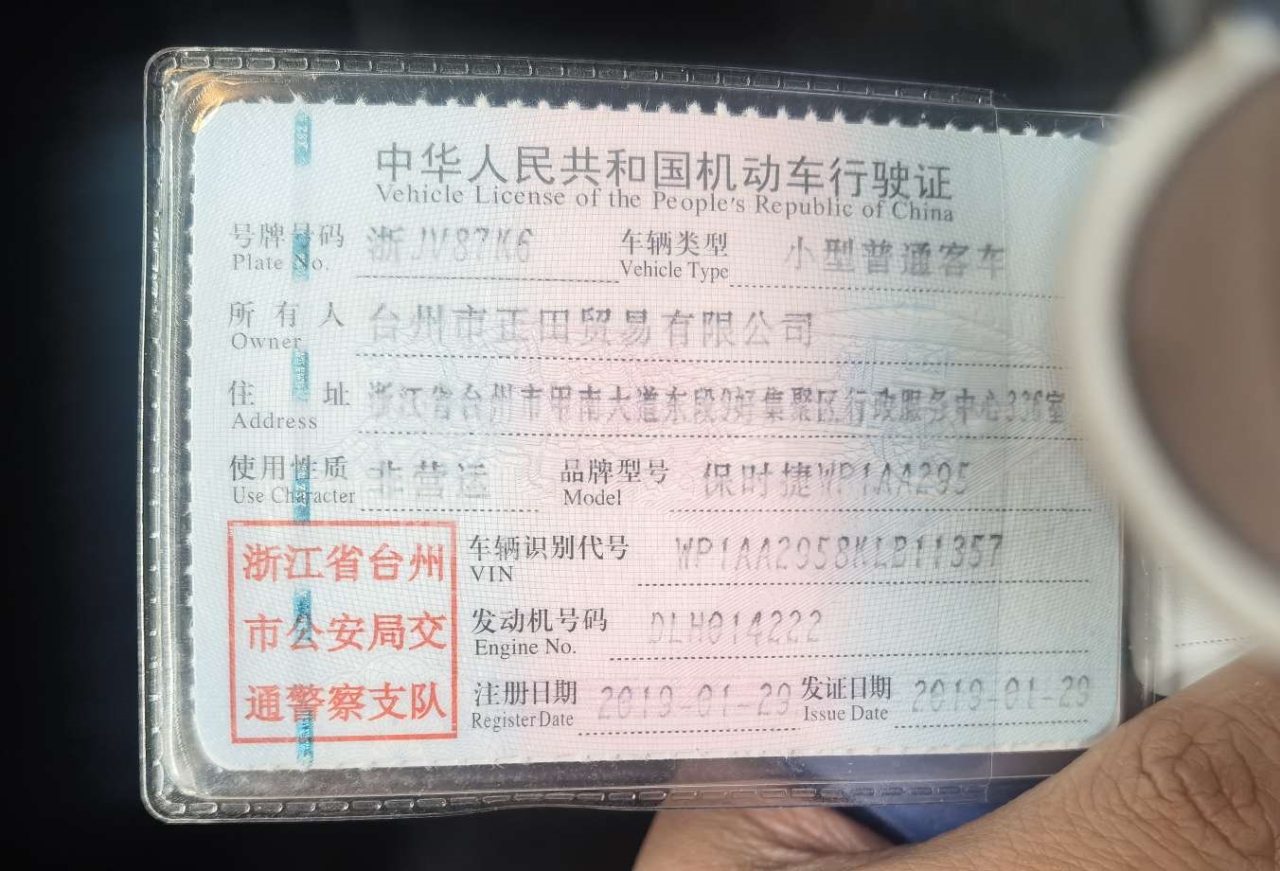 中华人民共和国机动车行驶证
Vehicle License of the People's Republic of China
号牌号码 浙JV87K6 车辆类型 小型普通客车
Plate No. Vehicle Type
所有人 台州市正田贸易有限公司
Owner
住址 浙江省台州市甲南大道东段9号集聚区行政服务中心336室
Address
使用性质 非营运 品牌型号 保时捷WP1AA295
Use Character Model
浙江省台州
市公安局交
通警察支队
车辆识别代号 WP1AA2958KLB11357
VIN
发动机号码 DLH014222
Engine No.
注册日期 2019-01-29 发证日期 2019-01-29
Register Date Issue Date